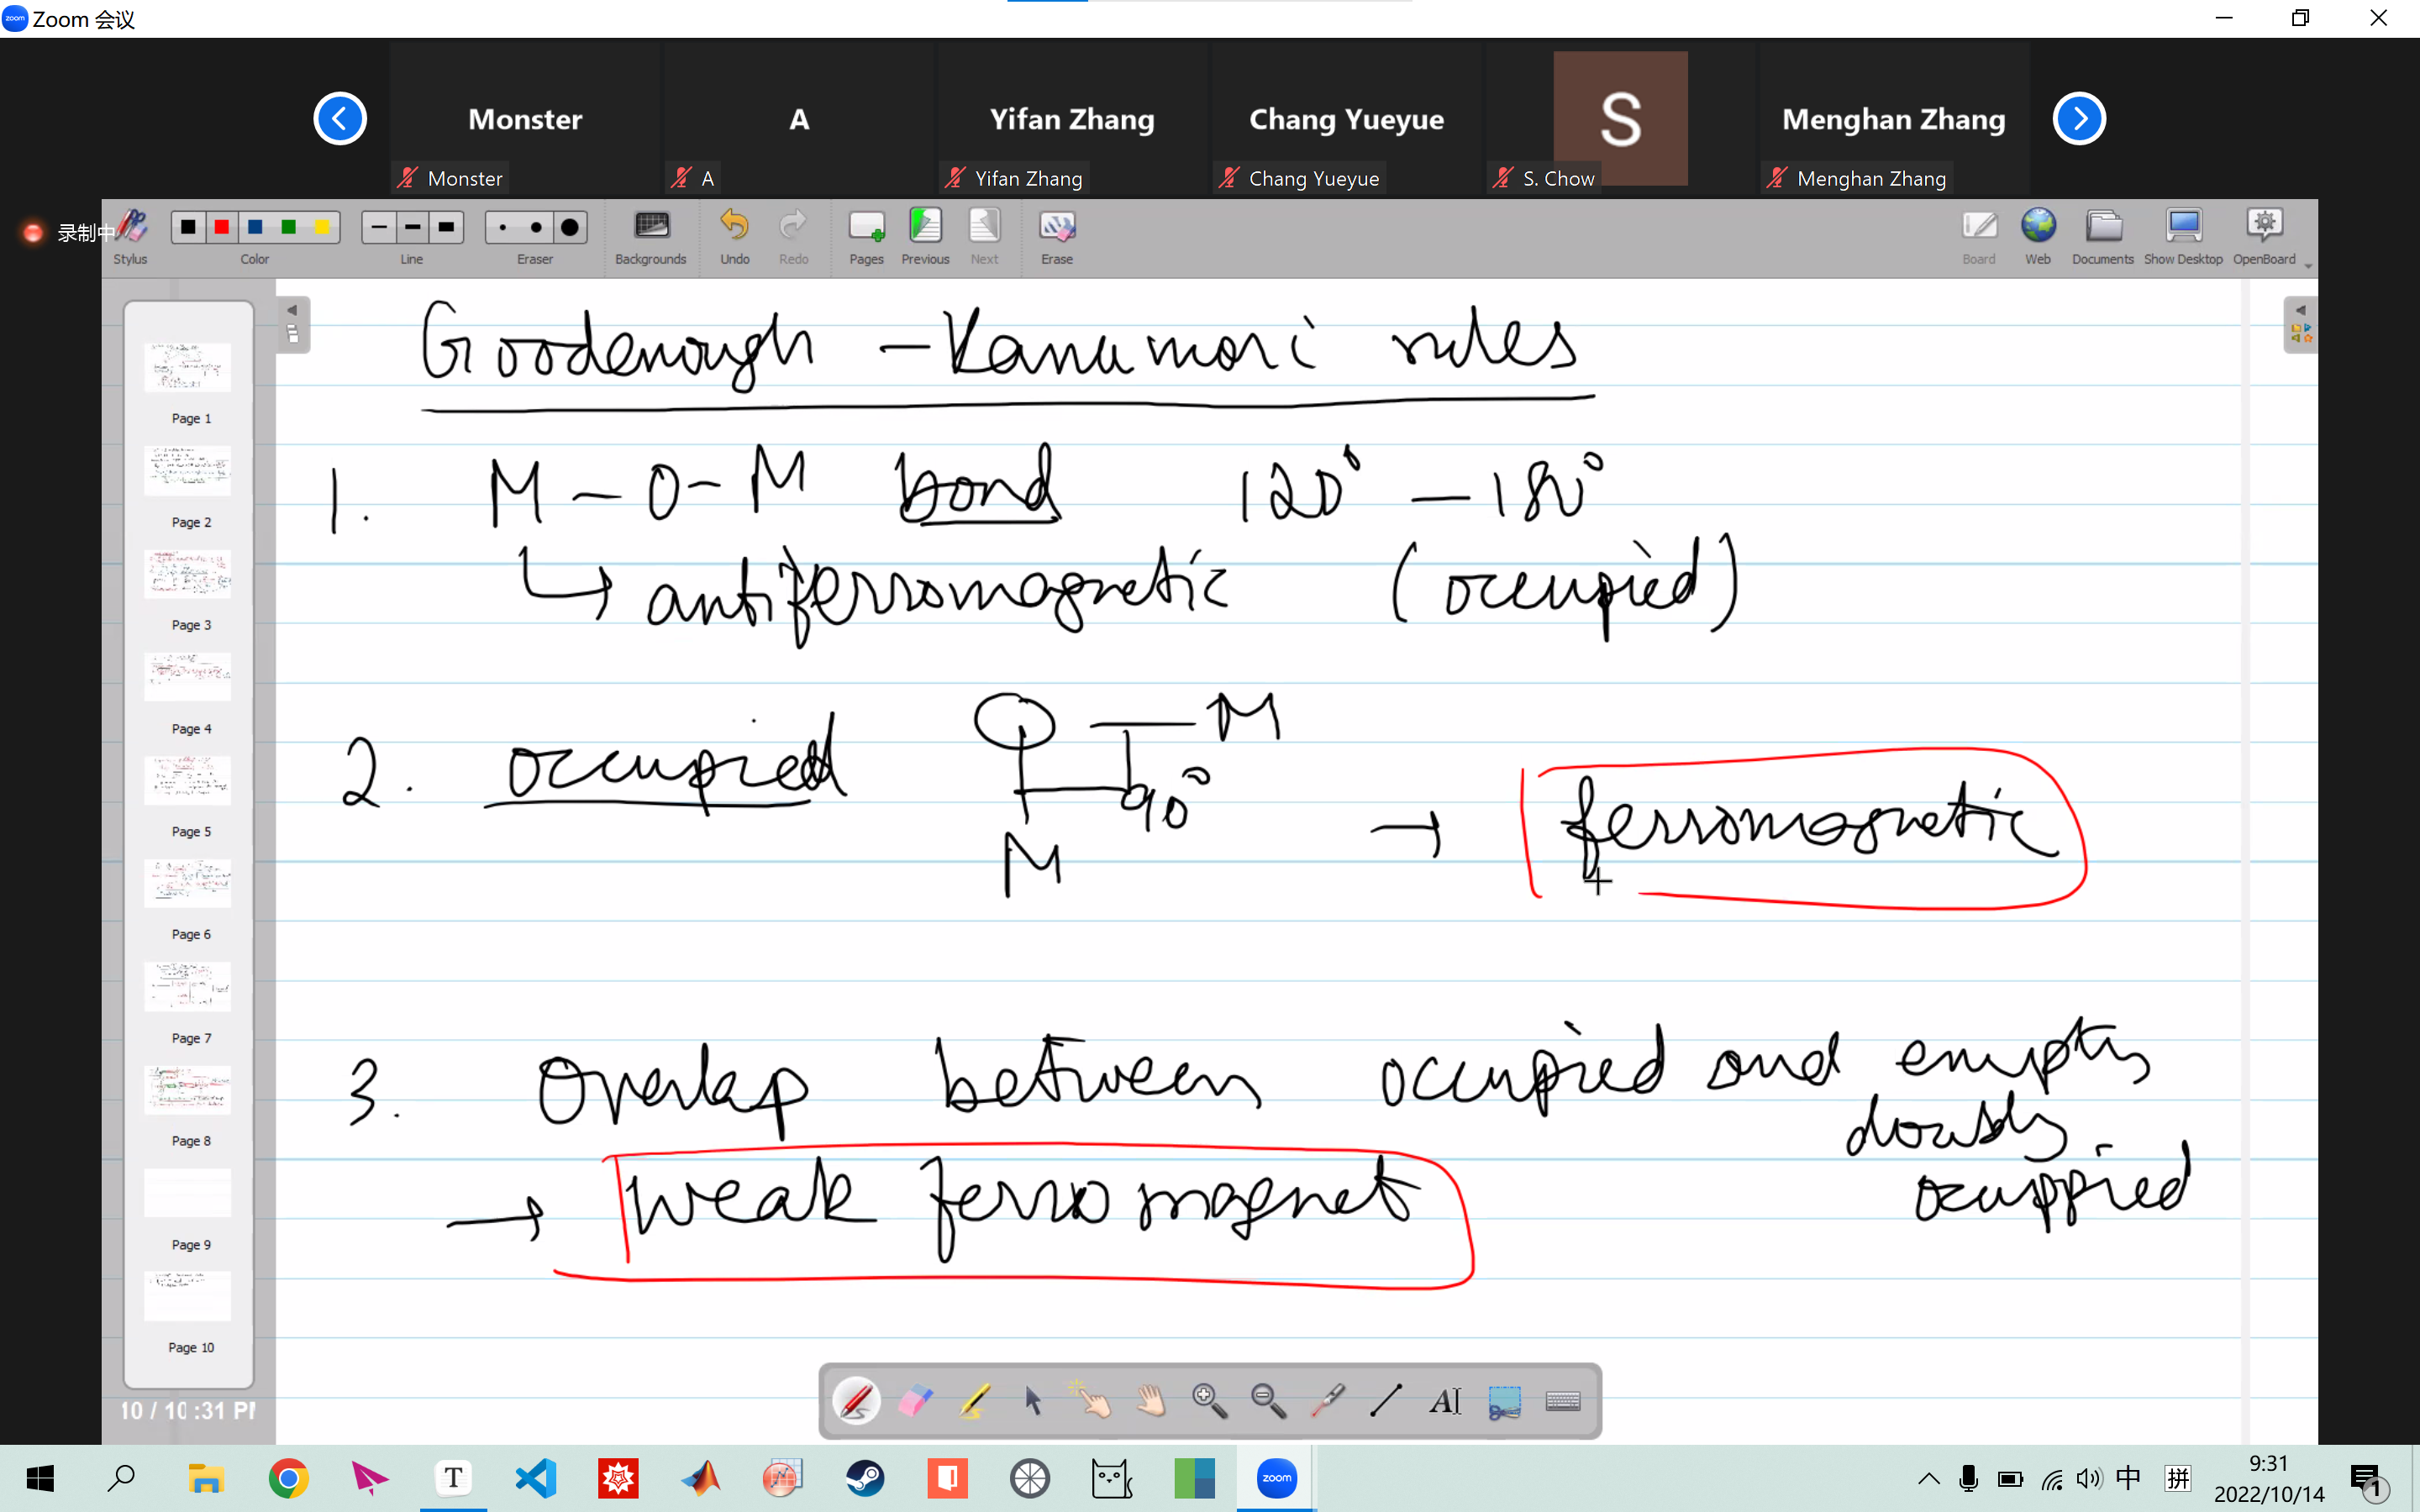 Zoom 会议
Monster
A
Yifan Zhang
Chang Yueyue
S
Menghan Zhang
Monster
A
Yifan Zhang
Chang Yueyue
S. Chow
Menghan Zhang
录制中
Stylus
Color
Line
Eraser
Backgrounds
Undo
Redo
Pages
Previous
Next
Erase
Board
Web
Documents
Show Desktop
OpenBoard
Page 1
Page 2
Page 3
Page 4
Page 5
Page 6
Page 7
Page 8
Page 9
Page 10
Goodenough - Kanumori rules
1. M - O - M bond 120° - 180°
↳ antiferromagnetic (occupied)
2. occupied O — M
90°
M
→ ferromagnetic
3. Overlap between occupied and empty
doubly
occuppied
→ weak ferromagnet
10 / 10
:31 PM
AI
T
zoom
中
拼
9:31
2022/10/14
1